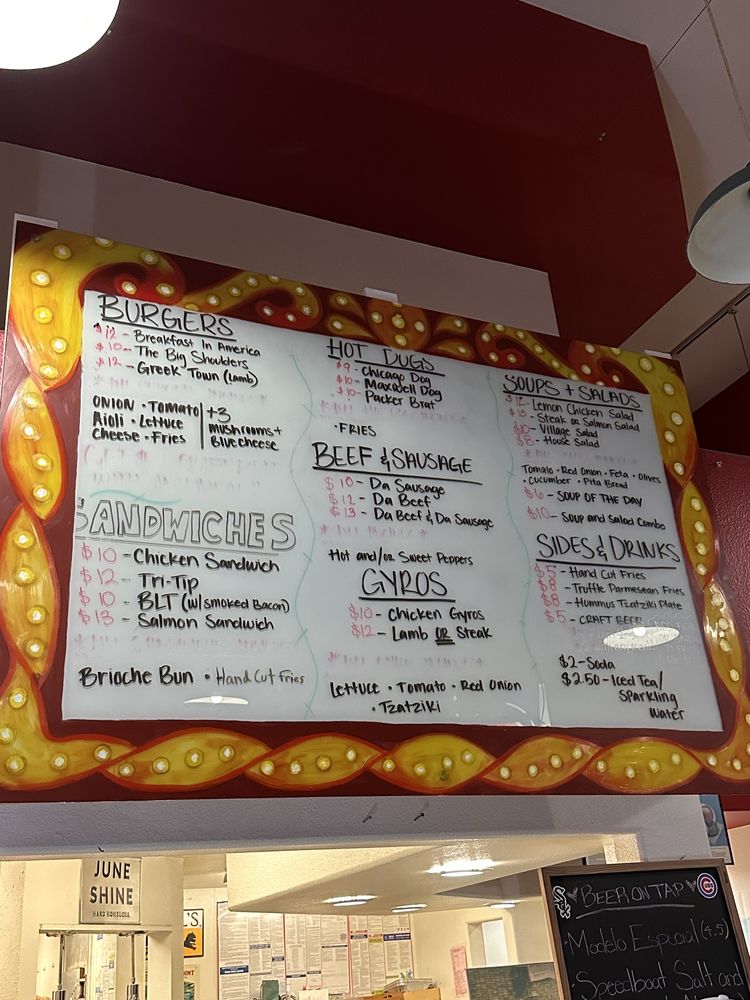 BURGERS
$12 - Breakfast In America
$10 - The Big Shoulders
$12 - Greek Town (Lamb)
ONION • Tomato
Aioli • Lettuce
Cheese • Fries
+3
mushrooms +
Bluecheese
SANDWICHES
$10 - Chicken Sandwich
$12 - Tri-Tip
$10 - BLT (w/smoked Bacon)
$13 - Salmon Sandwich
Brioche Bun • Hand Cut Fries
HOT DUGS
$9 - Chicago Dog
$10 - Maxwell Dog
$10 - Packer Brat
• FRIES
BEEF & SAUSAGE
$10 - Da Sausage
$12 - Da Beef
$13 - Da Beef & Da Sausage
Hot and/or Sweet Peppers
GYROS
$10 - Chicken Gyros
$12 - Lamb OR Steak
Lettuce • Tomato • Red Onion
• Tzatziki
SOUPS + SALADS
$12 - Lemon Chicken Salad
$15 - Steak or Salmon Salad
$10 - Village Salad
$8 - House Salad
Tomato • Red Onion • Feta • Olives
• Cucumber • Pita Bread
$6 - SOUP OF THE DAY
$10 - Soup and Salad Combo
SIDES & DRINKS
$5 - Hand Cut Fries
$8 - Truffle Parmesean Fries
$8 - Hummus Tzatziki Plate
$5 - CRAFT BEER
$2 - Soda
$2.50 - Iced Tea/
Sparkling
Water
JUNE
SHINE
HARD KOMBUCHA
BEER ON TAP
Modelo Especial (4.5)
Speedboat Salt and